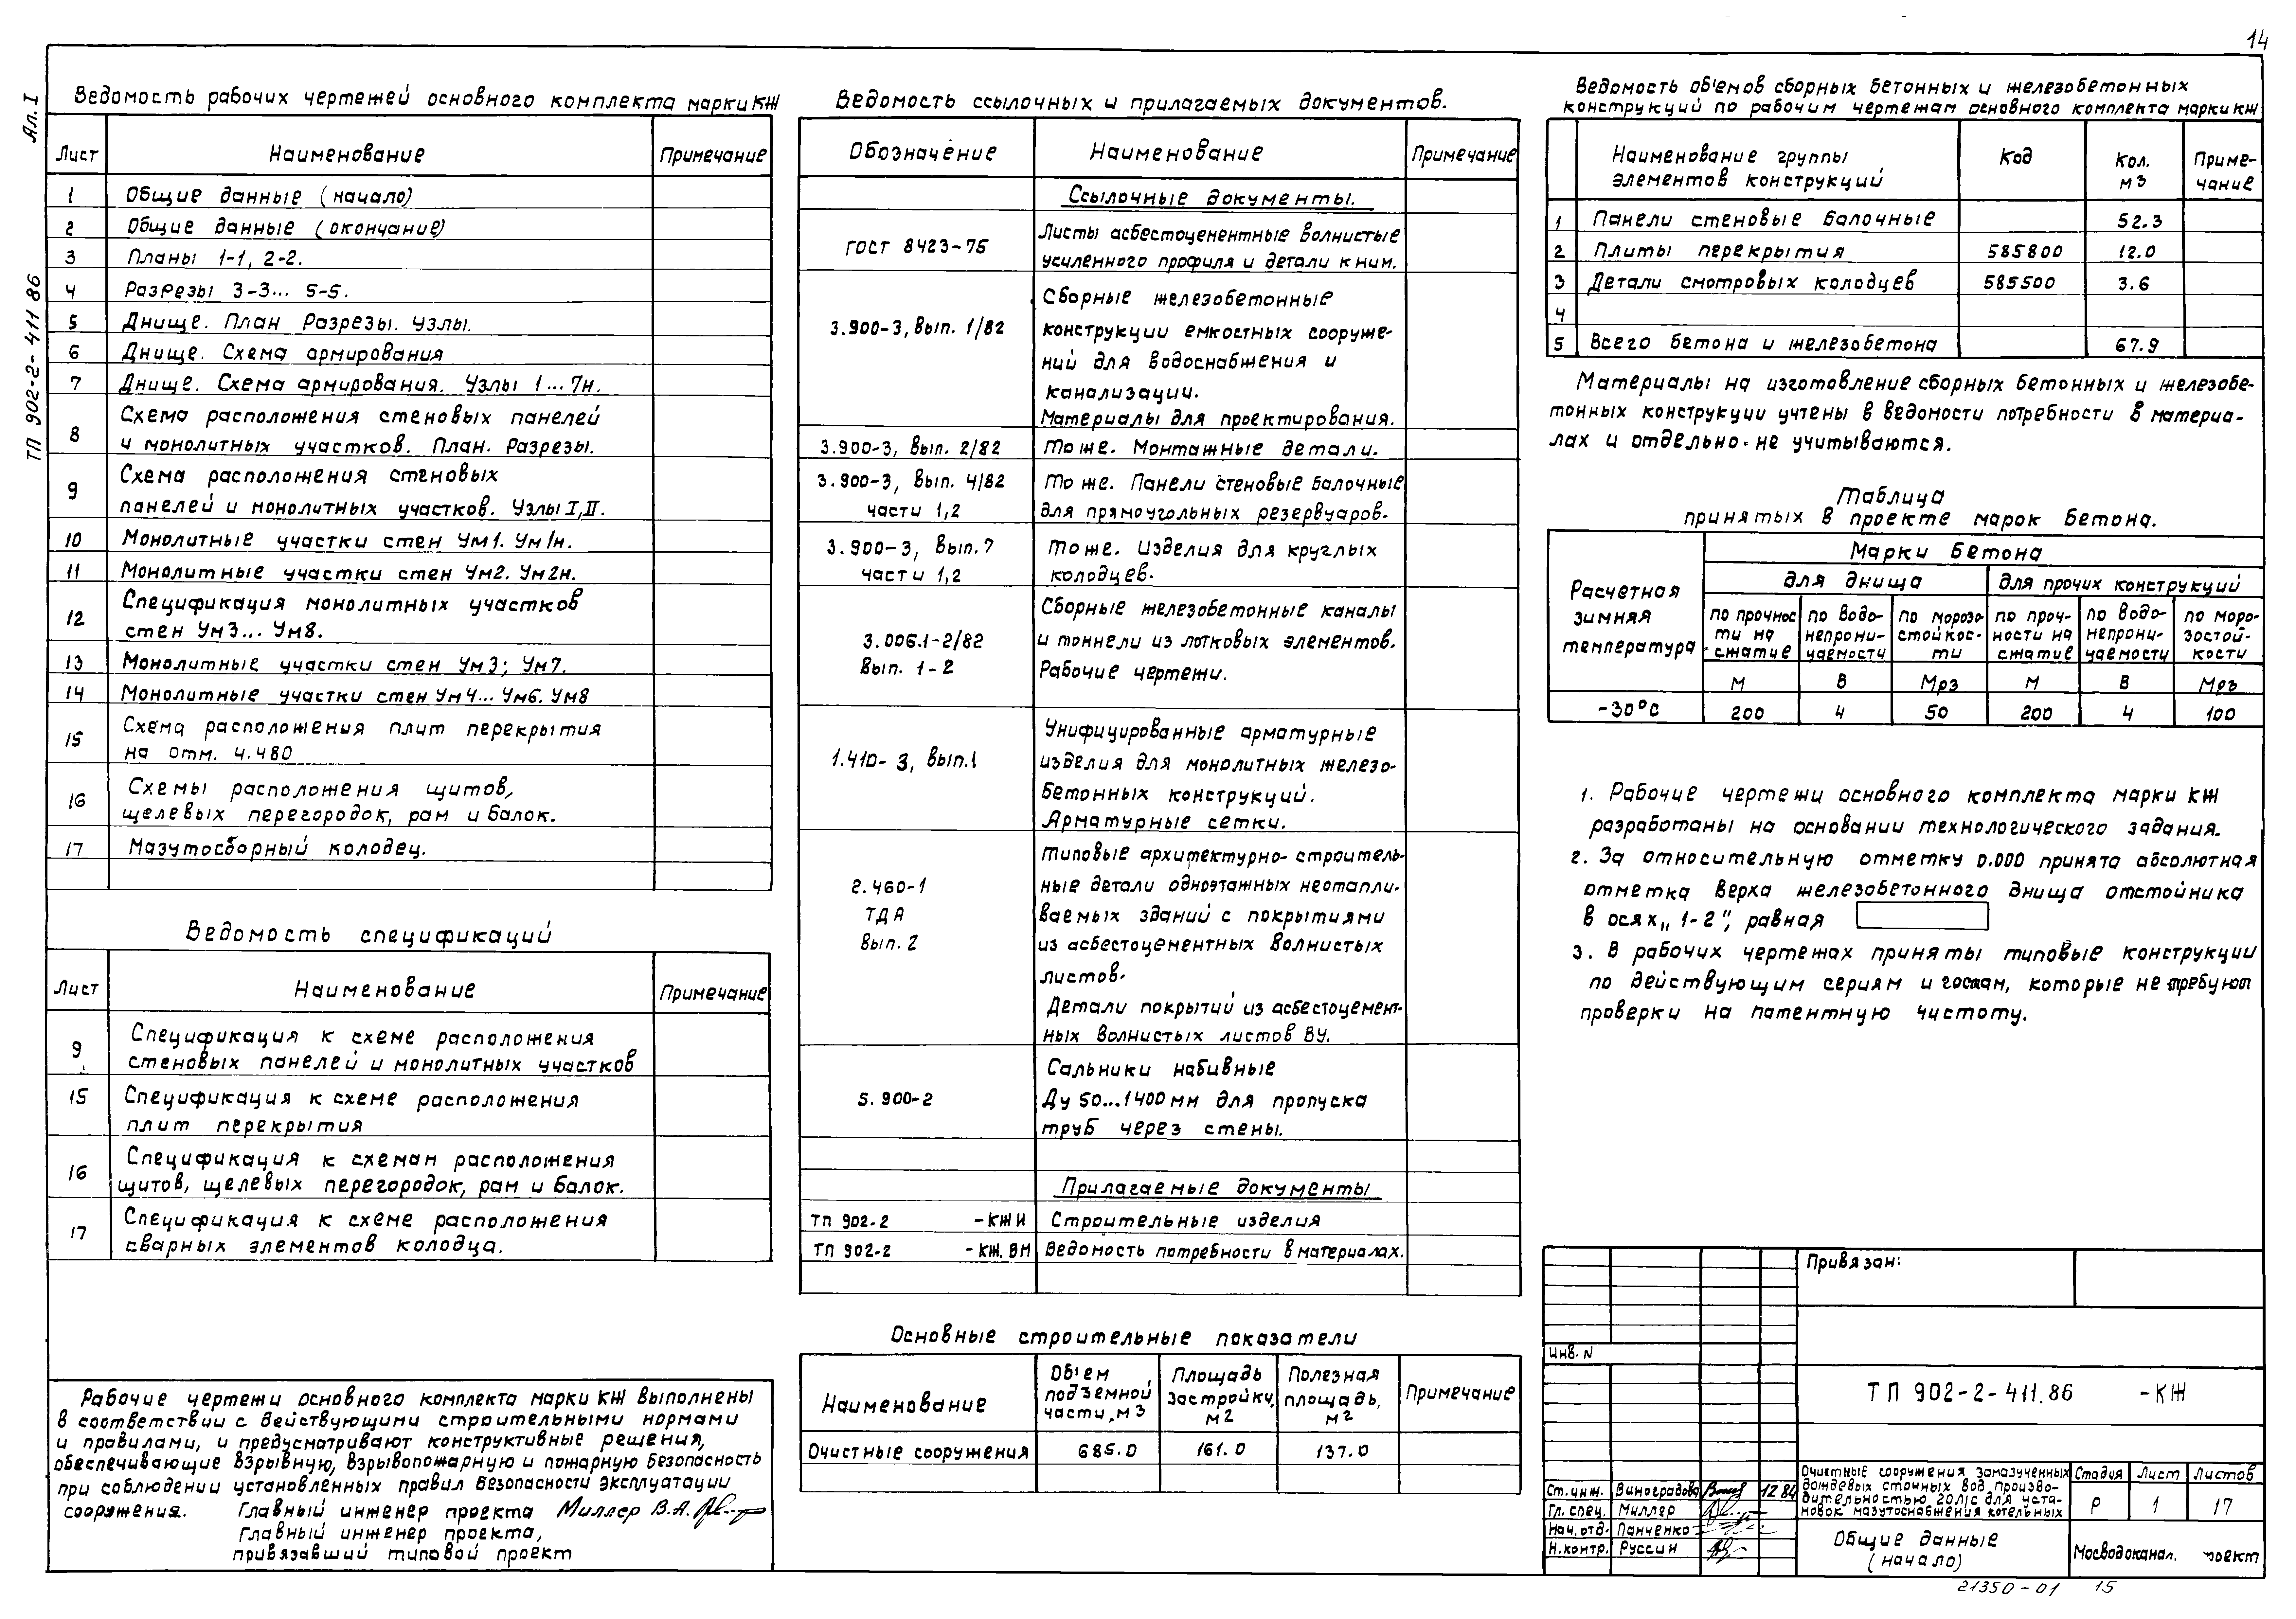 14
Ал. I
ТП 902-2-411 86
Ведомость рабочих чертежей основного комплекта марки КЖ
Лист Наименование Примечание
1 Общие данные (начало)
2 Общие данные (окончание)
3 Планы 1-1, 2-2.
4 Разрезы 3-3... 5-5.
5 Днище. План Разрезы. Узлы.
6 Днище. Схема армирования
7 Днище. Схема армирования. Узлы 1...7н.
8 Схема расположения стеновых панелей
и монолитных участков. План. Разрезы.
9 Схема расположения стеновых
панелей и монолитных участков. Узлы I, II.
10 Монолитные участки стен Ум1. Ум1н.
11 Монолитные участки стен Ум2. Ум2н.
12 Спецификация монолитных участков
стен Ум3... Ум8.
13 Монолитные участки стен Ум3; Ум7.
14 Монолитные участки стен Ум4... Ум6. Ум8
15 Схема расположения плит перекрытия
на отм. 4.480
16 Схемы расположения щитов,
щелевых перегородок, рам и балок.
17 Мазутосборный колодец.
Ведомость спецификаций
Лист Наименование Примечание
9 Спецификация к схеме расположения
стеновых панелей и монолитных участков
15 Спецификация к схеме расположения
плит перекрытия
16 Спецификация к схемам расположения
щитов, щелевых перегородок, рам и балок.
17 Спецификация к схеме расположения
сварных элементов колодца.
Рабочие чертежи основного комплекта марки КЖ выполнены
в соответствии с действующими строительными нормами
и правилами, и предусматривают конструктивные решения,
обеспечивающие взрывную, взрывопожарную и пожарную безопасность
при соблюдении установленных правил безопасности эксплуатации
сооружения. Главный инженер проекта Миллер В.А.
Главный инженер проекта,
привязавший типовой проект
Ведомость ссылочных и прилагаемых документов.
Обозначение Наименование Примечание
Ссылочные документы.
ГОСТ 8423-75 Листы асбестоцементные волнистые
усиленного профиля и детали к ним.
3.900-3, вып. 1/82 Сборные железобетонные
конструкции емкостных сооруже-
ний для водоснабжения и
канализации.
Материалы для проектирования.
3.900-3, вып. 2/82 То же. Монтажные детали.
3.900-3, вып. 4/82 То же. Панели стеновые балочные
части 1,2 для прямоугольных резервуаров.
3.900-3, вып.7 То же. Изделия для круглых
части 1,2 колодцев.
3.006.1-2/82 Сборные железобетонные каналы
Вып. 1-2 и тоннели из лотковых элементов.
Рабочие чертежи.
1.410-3, вып.1 Унифицированные арматурные
изделия для монолитных железо-
бетонных конструкций.
Арматурные сетки.
2.460-1 Типовые архитектурно-строитель-
ТДА ные детали одноэтажных неотапли-
Вып. 2 ваемых зданий с покрытиями
из асбестоцементных волнистых
листов.
Детали покрытий из асбестоцемент-
ных волнистых листов ВУ.
5.900-2 Сальники набивные
Ду 50...1400мм для пропуска
труб через стены.
Прилагаемые документы
ТП 902-2 -КЖИ Строительные изделия
ТП 902-2 -КЖ.ВМ Ведомость потребности в материалах.
Основные строительные показатели
Наименование Объем подземной части, м3 Площадь застройки, м2 Полезная площадь, м2 Примечание
Очистные сооружения 685.0 161.0 137.0
Ведомость объемов сборных бетонных и железобетонных
конструкций по рабочим чертежам основного комплекта марки КЖ
Наименование группы элементов конструкций Код Кол. м3 Приме-чание
1 Панели стеновые балочные 52.3
2 Плиты перекрытия 585800 12.0
3 Детали смотровых колодцев 585500 3.6
4
5 Всего бетона и железобетона 67.9
Материалы на изготовление сборных бетонных и железобе-
тонных конструкции учтены в ведомости потребности в материа-
лах и отдельно не учитываются.
Таблица
принятых в проекте марок бетона.
Расчетная зимняя температура Марки бетона
для днища для прочих конструкций
по прочнос ти на сжатие по водо-непрони-цаемости по морозо стойкос-ти по проч-ности на сжатие по водо-непрони-цаемости по моро-зостой-кости
М В Мрз М В Мрз
-30°С 200 4 50 200 4 100
1. Рабочие чертежи основного комплекта марки КЖ
разработаны на основании технологического задания.
2. За относительную отметку 0.000 принята абсолютная
отметка верха железобетонного днища отстойника
в осях „1-2”, равная
3. В рабочих чертежах приняты типовые конструкции
по действующим сериям и гостам, которые не требуют
проверки на патентную чистоту.
Привязан:
Инв. N
ТП 902-2-411.86 -КЖ
Ст. инж. Виноградова 12 84
Гл. спец. Миллер
Нач. отд. Панченко
Н. контр. Руссин
Очистные сооружения замазученных
дождевых сточных вод произво-
дительностью 20л/с для уста-
новок мазутоснабжения котельных
Стадия Лист Листов
Р 1 17
Общие данные
(начало)
Мосводоканал. проект
21350-01 15